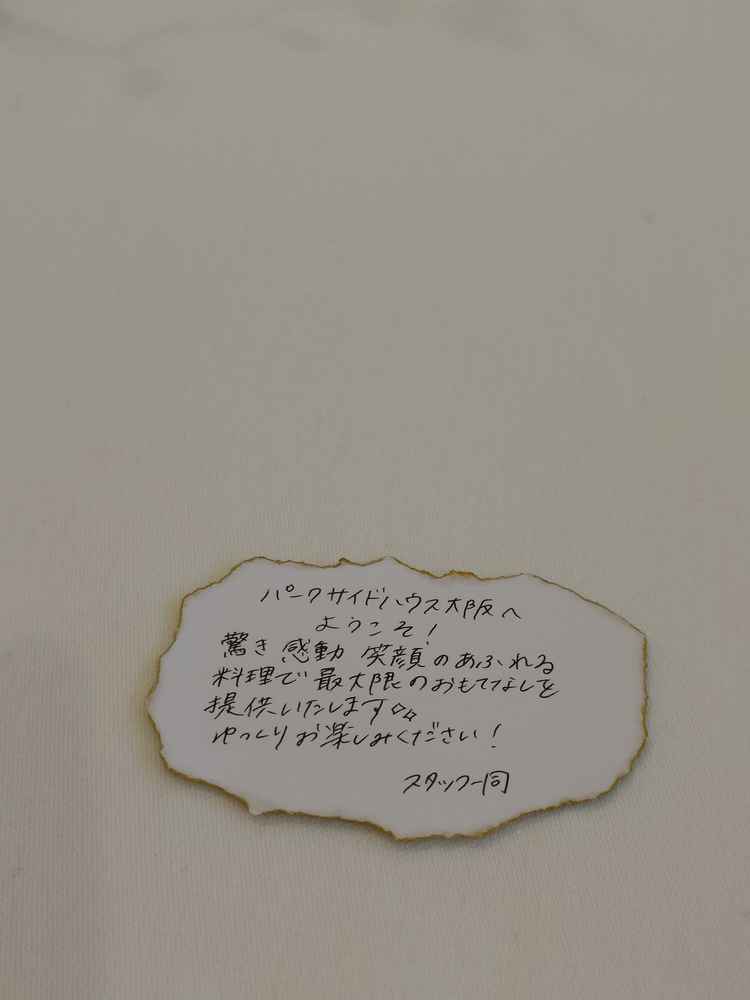 パークサイドハウス大阪へ
ようこそ!
驚き 感動 笑顔のあふれる
料理で最大限のおもてなしを
提供いたします✧✧
ゆっくりお楽しみください!
スタッフ一同